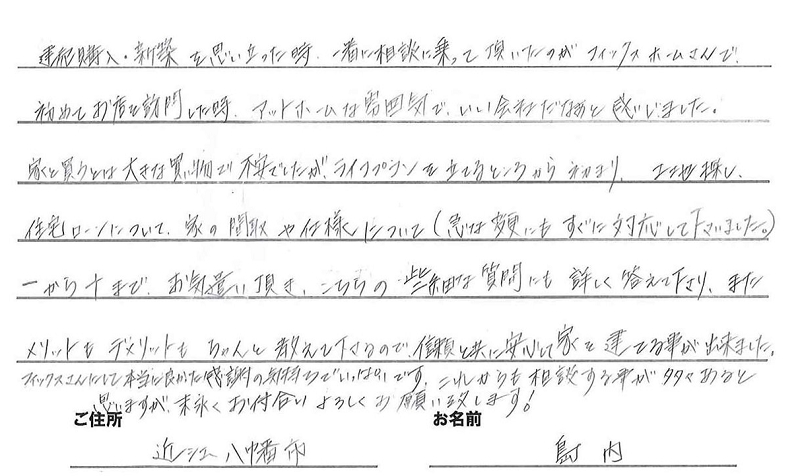 購入・新築を思い立った時、一番に相談に乗って頂いたのがフィックスホームさんで、
初めてお店を訪問した時、アットホームな雰囲気で、いい会社だなぁと感じました。
家を買うとは大きな買い物で不安でしたが、ライフプランを立てるところから初まり、土地探し、
住宅ローンについて、家の間取や仕様について(急な変更にもすぐに対応して下さいました。)
一から十まで、お気遣い頂き、こちらの些細な質問にも詳しく答えて下さり、また
メリットもデメリットもちゃんと教えて下さるので、信頼と共に安心して家を建てる事が出来ました。
フィックスさんにして本当に良かった感謝の気持ちでいっぱいです。これからも相談する事が多々あると
思いますが、末永くお付合いよろしくお願い致します!
ご住所 お名前
近江八幡市 島内